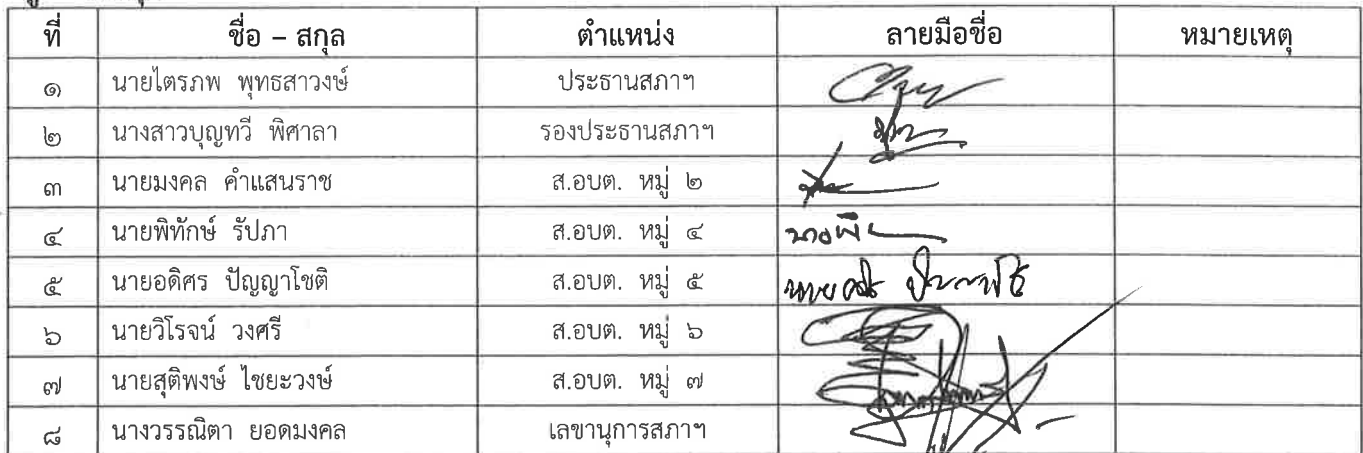 ที่ ชื่อ – สกุล ตำแหน่ง ลายมือชื่อ หมายเหตุ
๑ นายไตรภพ พุทธสาวงษ์ ประธานสภาฯ
๒ นางสาวบุญทวี พิศาลา รองประธานสภาฯ
๓ นายมงคล คำแสนราช ส.อบต. หมู่ ๒
๔ นายพิทักษ์ รัปภา ส.อบต. หมู่ ๔
๕ นายอดิศร ปัญญาโชติ ส.อบต. หมู่ ๕
๖ นายวิโรจน์ วงศรี ส.อบต. หมู่ ๖
๗ นายสุติพงษ์ ไชยะวงษ์ ส.อบต. หมู่ ๗
๘ นางวรรณิตา ยอดมงคล เลขานุการสภาฯ